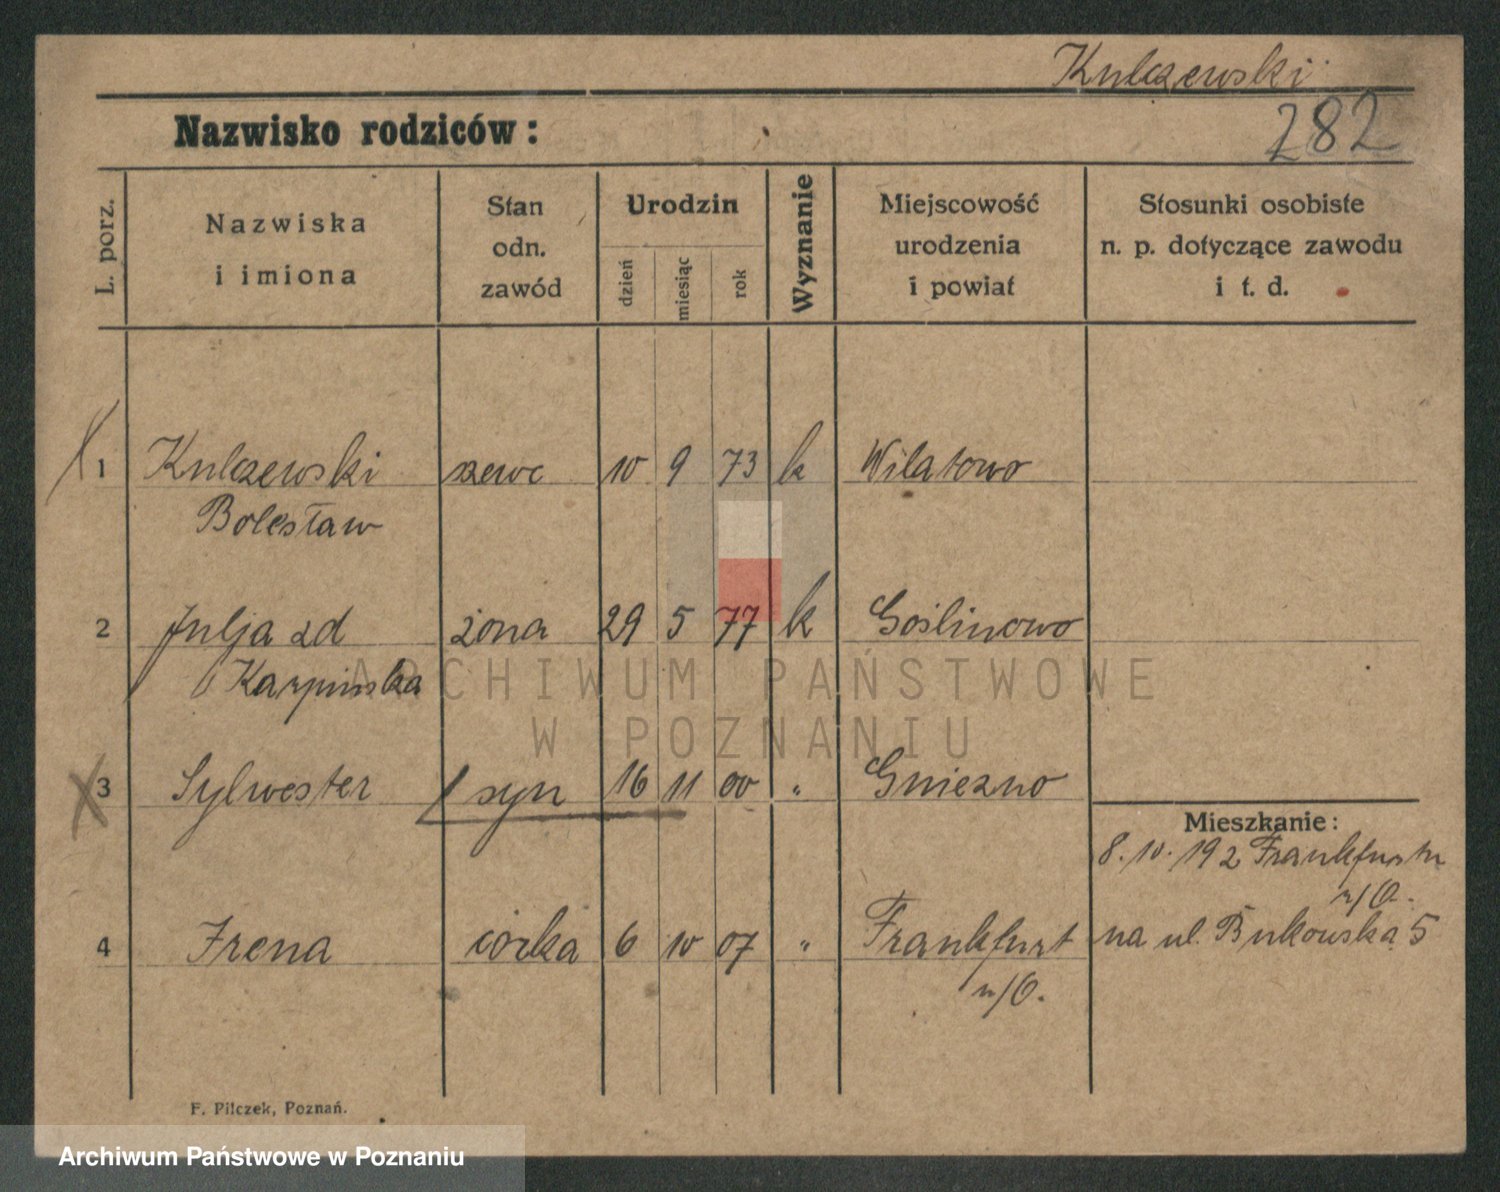 Kulczewski
282
Nazwisko rodziców:
L. porz.
Nazwiska
i imiona
Stan
odn.
zawód
Urodzin
dzień
miesiąc
rok
Wyznanie
Miejscowość
urodzenia
i powiat
Stosunki osobiste
n. p. dotyczące zawodu
i t. d.
1 Kulczewski szewc 10 9 73 k Wilatowo
Bolesław
2 Julja zd żona 29 5 77 k Goślinowo
Karpińska
ARCHIWUM PAŃSTWOWE
W POZNANIU
3 Sylwester syn 16 11 00 " Gniezno
Mieszkanie:
8. 10. 192 Frankfurtu
n/O.
4 Irena córka 6 10 07 " Frankfurt na ul. Bukowska 5
n/O.
F. Pilczek, Poznań.
Archiwum Państwowe w Poznaniu